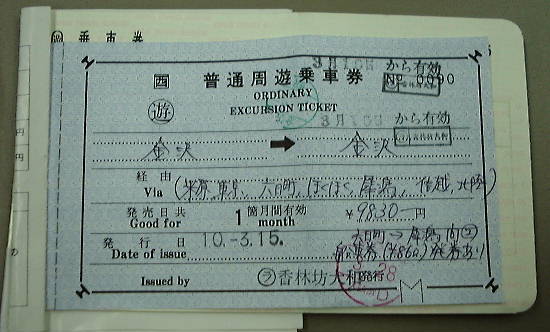 乗車券
3月15日から有効
西 普通周遊乗車券
No 0090
ORDINARY
遊
EXCURSION TICKET
3月15日から有効
金沢 ➡ 金沢
経由
Via (米原、東京、六日町、ほくほく、犀潟、信越、北陸)
発売日共 1 箇月間有効
Good for month
¥9830-円
発行日 10.-3.15.
Date of issue
六日町→犀潟間
Issued by ラ香林坊大和発行